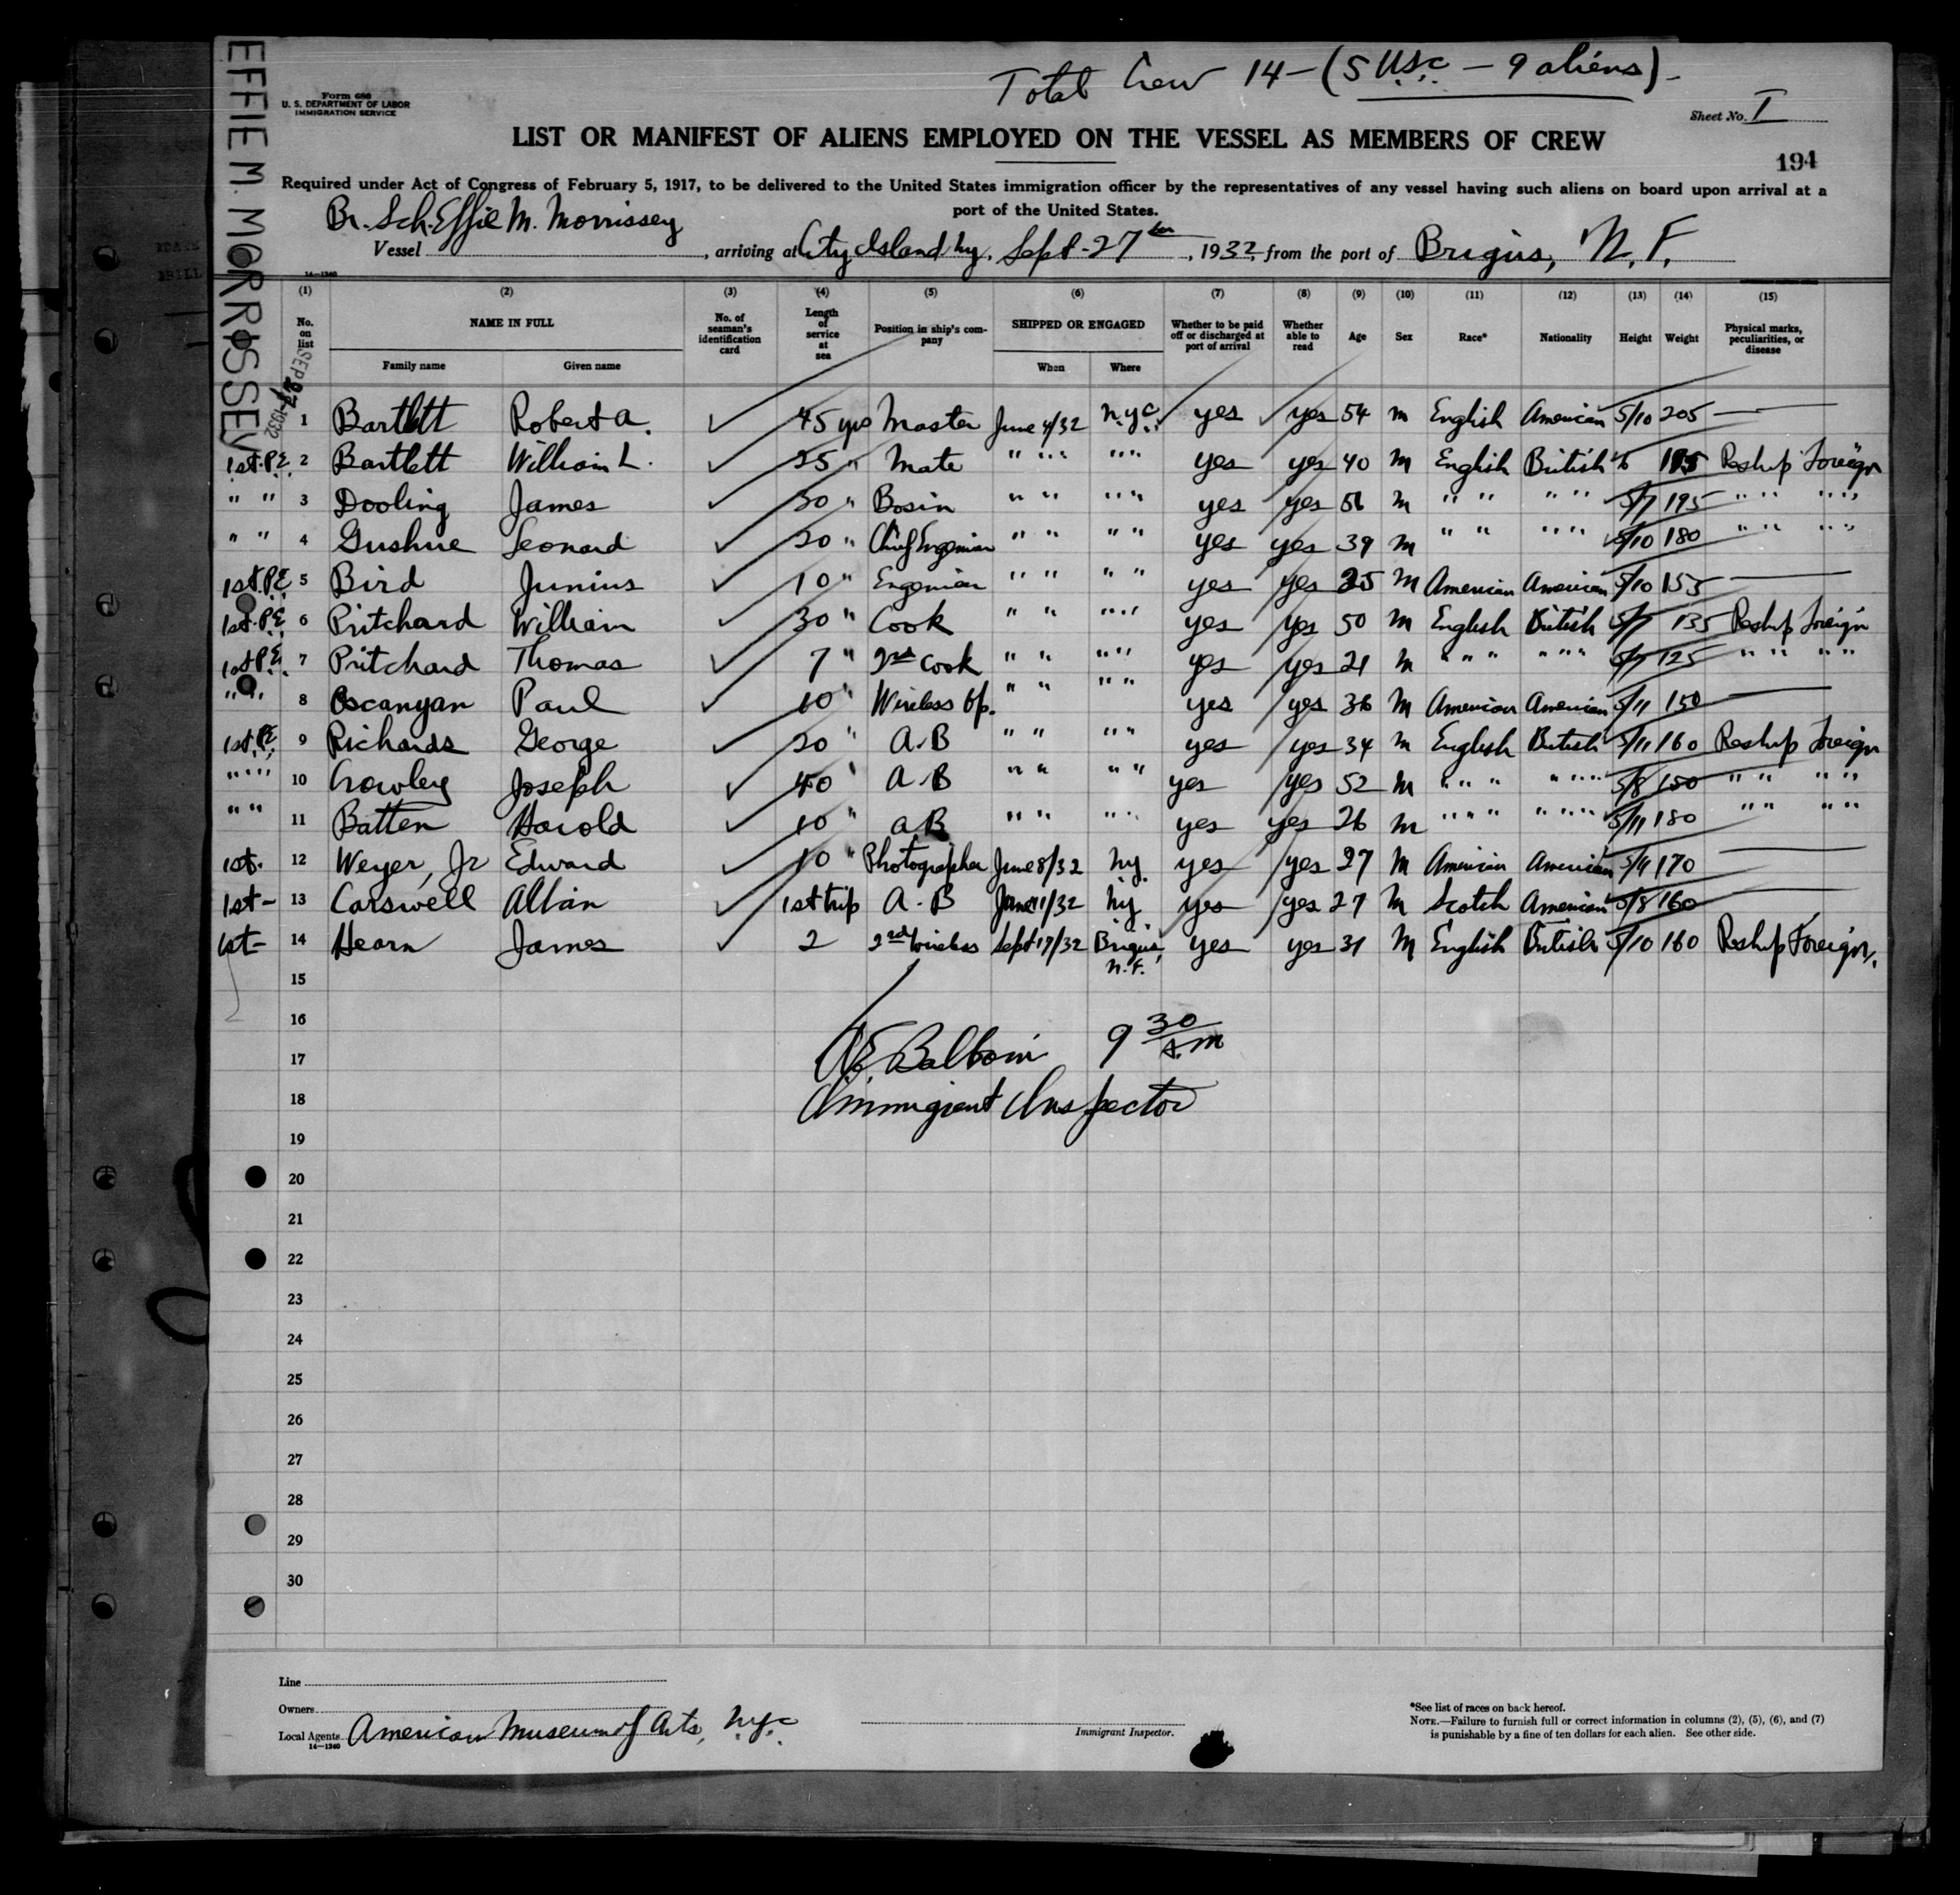 EFFIE M. MORRISSEY
Total Crew 14 - (5 USC - 9 aliens) -
Form 680
U. S. DEPARTMENT OF LABOR
IMMIGRATION SERVICE
Sheet No. I
LIST OR MANIFEST OF ALIENS EMPLOYED ON THE VESSEL AS MEMBERS OF CREW
194
Required under Act of Congress of February 5, 1917, to be delivered to the United States immigration officer by the representatives of any vessel having such aliens on board upon arrival at a
port of the United States.
Vessel Br. Sch. Effie M. Morrissey, arriving at City Island Ny, Sept - 27th, 1932, from the port of Brigus, N. F.
14—1240
(1) (2) (3) (4) (5) (6) (7) (8) (9) (10) (11) (12) (13) (14) (15)
No. on list NAME IN FULL No. of seaman's identification card Length of service at sea Position in ship's company SHIPPED OR ENGAGED Whether to be paid off or discharged at port of arrival Whether able to read Age Sex Race* Nationality Height Weight Physical marks, peculiarities, or disease
Family name Given name When Where
SEP 27 1932
1 Bartlett Robert A. 45 yrs Master June 4/32 N.Y.C. yes yes 54 m English American 5/10 205 —
1st. P.E. 2 Bartlett William L. 25 " Mate " " " " yes yes 40 m English British 6 Reship Foreign
" " 3 Dooling James 30 " Bosin " " " " yes yes 56 m " " " " 5/7 195 " " " "
" " 4 Gushue Leonard 20 " Chief Engenier " " " " yes yes 39 m " " " " 5/10 180 " " " "
1st. P.E. 5 Bird Junius 10 " Engenier " " " " yes yes 25 M American American 5/10 155 —
1st. P.E. 6 Pritchard William 30 " Cook " " " " yes yes 50 M English British 5/7 135 Reship Foreign
1st P.E. 7 Pritchard Thomas 7 " 2nd Cook " " " " yes yes 21 M " " " " " 5/7 125 " " " "
" " 8 Oscanyan Paul 10 " Wireless Op. " " " " yes yes 36 M American American 5/11 150 —
1st. P.E. 9 Richards George 20 " A.B " " " " yes yes 34 m English British 5/11 160 Reship Foreign
" " 10 Crowley Joseph 40 " A.B " " " " yes yes 52 M " " " " 5/8 150 " " " "
" " 11 Batten Harold 10 " A B " " " " yes yes 26 m " " " " 5/11 180 " " " "
1st. 12 Weyer, Jr Edward 10 " Photographer June 8/32 Ny. yes yes 27 M American American 170 —
1st - 13 Carswell Albian 1st trip A. B June 11/32 Ny yes yes 27 M Scotch American 5/8 160 —
1st - 14 Hearn James 2 2nd Wireless Sept 17/32 Brigus, N.F. yes yes 31 M English British 5/10 160 Reship Foreign.
15
16
17
18
19
20
21
22
23
24
25
26
27
28
29
30
Balboin 9 30 A.m
Immigrant Inspector
Line
Owners
Local Agents American Museum of Arts, Nyc.
14—1240
Immigrant Inspector.
*See list of races on back hereof.
NOTE.—Failure to furnish full or correct information in columns (2), (5), (6), and (7)
is punishable by a fine of ten dollars for each alien. See other side.